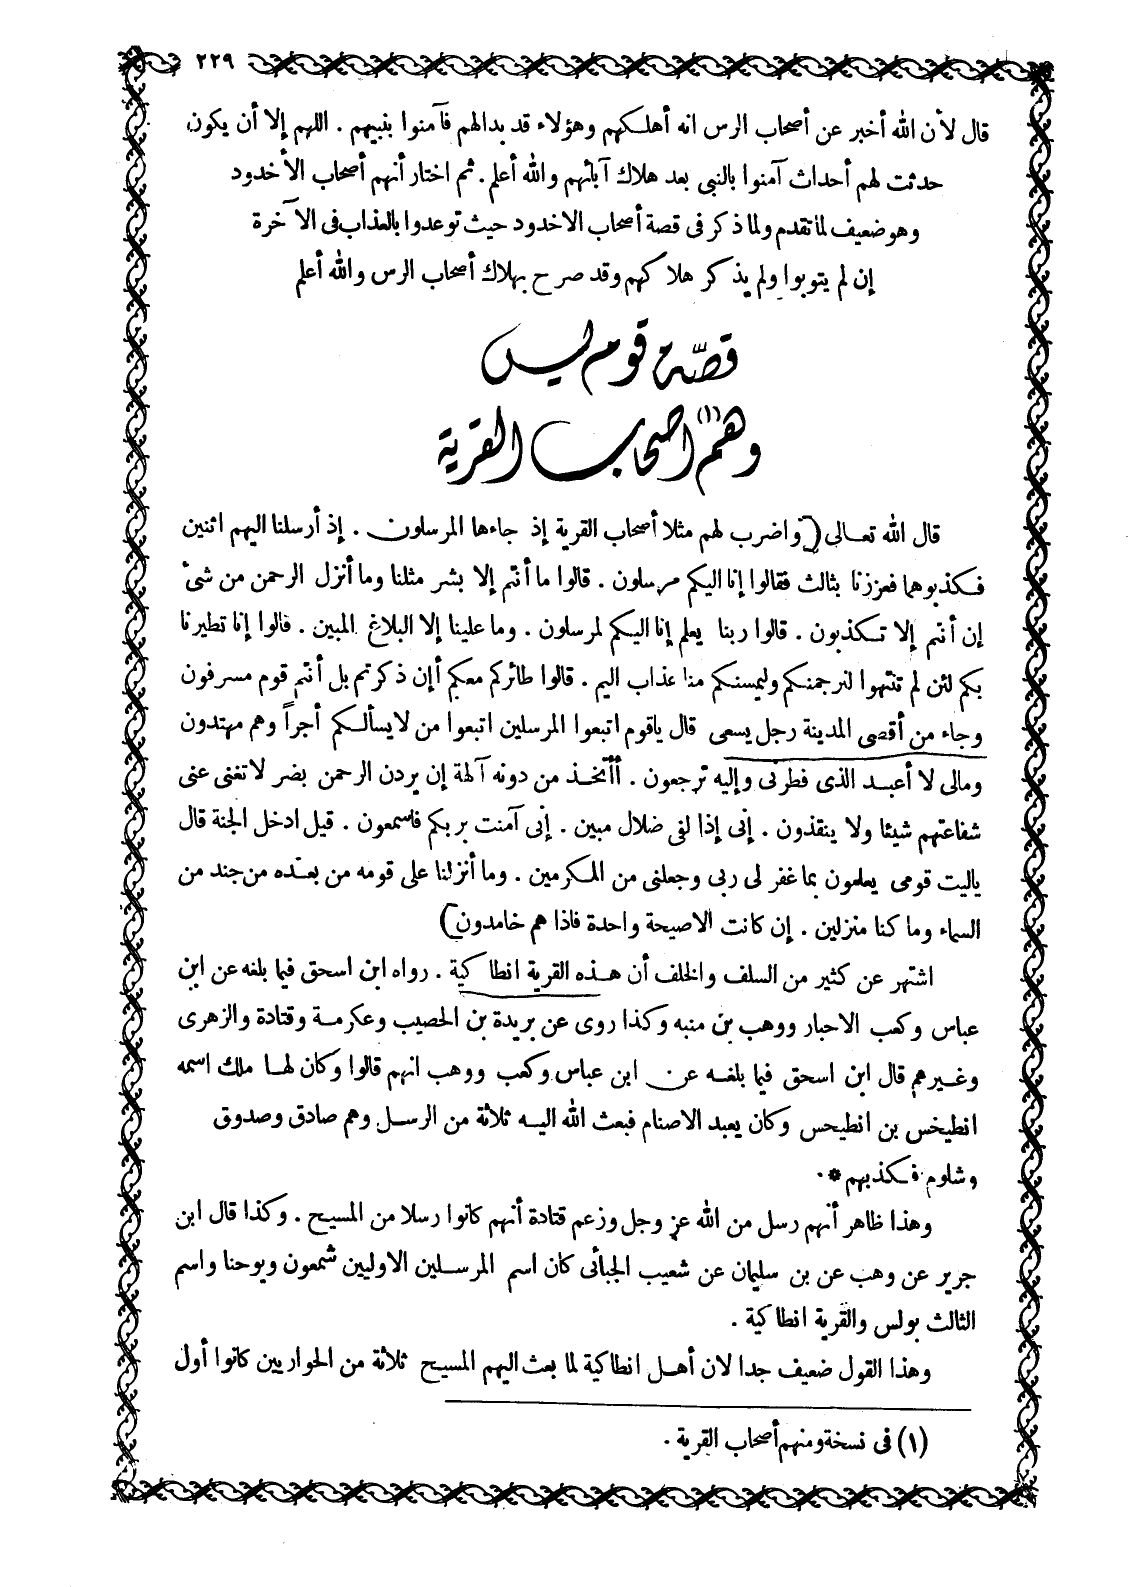 ٢٢٩
قال لأن الله أخبر عن أصحاب الرس انه أهلكهم وهؤلاء قد بدالهم فآمنوا بنبيهم . اللهم إلا أن يكون
حدثت لهم أحداث آمنوا بالنبى بعد هلاك آبائهم والله أعلم . ثم اختار أنهم أصحاب الأخدود
وهو ضعيف لما تقدم ولما ذكر فى قصة أصحاب الاخدود حيث توعدوا بالعذاب فى الآخرة
إن لم يتوبوا ولم يذكر هلاكهم وقد صرح بهلاك أصحاب الرس والله أعلم
قصة قوم يس
وهم (١) اصحاب القرية
قال الله تعالى ( واضرب لهم مثلا أصحاب القرية إذ جاءها المرسلون . إذ أرسلنا اليهم اثنين
فكذبوهما فعززنا بثالث فقالوا إنا اليكم مرسلون . قالوا ما أنتم إلا بشر مثلنا وما أنزل الرحمن من شئ
إن أنتم إلا تكذبون . قالوا ربنا يعلم إنا اليكم لمرسلون . وما علينا إلا البلاغ المبين . قالوا إنا تطيرنا
بكم لئن لم تنتهوا لنرجمنكم وليمسنكم منا عذاب اليم . قالوا طائركم معكم أإن ذكرتم بل أنتم قوم مسرفون
وجاء من أقصى المدينة رجل يسعى قال ياقوم اتبعوا المرسلين اتبعوا من لايسألكم أجراً وهم مهتدون
ومالى لا أعبد الذى فطرنى وإليه ترجعون . أأتخذ من دونه آلهة إن يردن الرحمن بضر لا تغنى عنى
شفاعتهم شيئا ولا ينقذون . إنى إذا لفى ضلال مبين . إنى آمنت بربكم فاسمعون . قيل ادخل الجنة قال
ياليت قومى يعلمون بما غفر لى ربى وجعلنى من المكرمين . وما أنزلنا على قومه من بعده من جند من
السماء وما كنا منزلين . إن كانت الاصيحة واحدة فاذا هم خامدون )
اشتهر عن كثير من السلف والخلف أن هذه القرية انطاكية . رواه ابن اسحق فيما بلغه عن ابن
عباس وكعب الاحبار ووهب بن منبه وكذا روى عن بريدة بن الحصيب وعكرمة وقتادة والزهرى
وغيرهم قال ابن اسحق فيما بلغه عن ابن عباس وكعب ووهب انهم قالوا وكان لها ملك اسمه
انطيخس بن انطيحس وكان يعبد الاصنام فبعث الله اليه ثلاثة من الرسل وهم صادق وصدوق
وشلوم فكذبهم * .
وهذا ظاهر أنهم رسل من الله عز وجل وزعم قتادة أنهم كانوا رسلا من المسيح . وكذا قال ابن
جرير عن وهب عن بن سليمان عن شعيب الجبائى كان اسم المرسلين الاوليين شمعون ويوحنا واسم
الثالث بولس والقرية انطاكية .
وهذا القول ضعيف جدا لان أهل انطاكية لما بعث اليهم المسيح ثلاثة من الحواريين كانوا أول
(١) فى نسخة ومنهم أصحاب القرية .